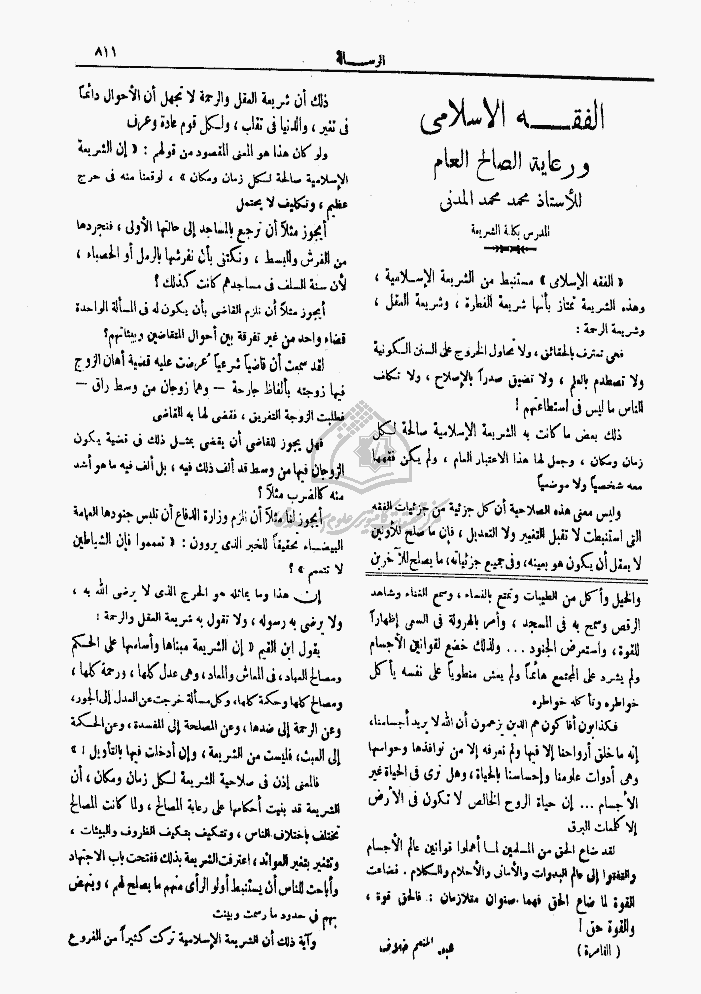 ٨١١
الرسالة
الفقه الإسلامى
ورعاية الصالح العام
للأستاذ محمد محمد المدنى
المدرس بكلية الشريعة
« الفقه الإسلامى » مستنبط من الشريعة الإسلامية ،
وهذه الشريعة تمتاز بأنها شريعة الفطرة ، وشريعة العقل ،
وشريعة الرحمة :
فهى تعترف بالحقائق ، ولا تحاول الخروج على السنن الكونية
ولا تصطدم بالعلم ، ولا تضيق صدراً بالإصلاح ، ولا تكلف
الناس ما ليس فى استطاعتهم !
ذلك بعض ما كانت به الشريعة الإسلامية صالحة لكل
زمان ومكان ، وجعل لها هذا الاعتبار العام ، ولم يكن فقهها
معه شخصياً ولا موضعياً
وليس معنى هذه الصلاحية أن كل جزئية من جزئيات الفقه
التى استنبطت لا تقبل التغيير ولا التعديل ، فإن ما صلح للأولين
لا يعقل أن يكون هو بعينه، وفى جميع جزئياته، ما يصلح للآخرين
والخيل وأكل من الطيبات وتمتع بالنساء ، وسمع الغناء وشاهد
الرقص وسمح به فى المسجد ، وأمر بالهرولة فى السعى إظهاراً
للقوة ، واستعرض الجنود ... ولذلك خضع لقوانين الأجسام
ولم يشرد على المجتمع هائماً ولم يعش منطوياً على نفسه يأكل
خواطره وتأكله خواطره
فكذابون أفاكون هم الذين يزعمون أن الله لا يريد أجسامنا،
إنه ما خلق أرواحنا إلا فيها ولم نعرفه إلا من نوافذها وحواسها
وهى أدوات علومنا وإحساسنا بالحياة ، وهل ترى فى الحياة غير
الأجسام ... إن حياة الروح الخالص لا تكون فى الأرض
إلا كلمات البرق
لقد ضاع الحق من المسلمين لما أهملوا قوانين عالم الأجسام
والتفتوا إلى عالم البدوات والأمانى والأحلام والكلام . فضاعت
القوة لما ضاع الحق فهما صنوان متلازمان : فالحق قوة ،
والقوة حق !
( القاهرة ) عبد المنعم خلاف
ذلك أن شريعة العقل والرحمة لا تجهل أن الأحوال دائماً
فى تغير ، والدنيا فى تقلب ، ولكل قوم عادة وعرف
ولو كان هذا هو المعنى المقصود من قولهم : « إن الشريعة
الإسلامية صالحة لكل زمان ومكان » ، لوقعنا منه فى حرج
عظيم ، وتكليف لا يحتمل
أيجوز مثلاً أن ترجع بالمساجد إلى حالتها الأولى ، فنجردها
من الفرش والبسط ، ونكتفى بأن نفرشها بالرمل أو الحصباء ،
لأن سنة السلف فى مساجدهم كانت كذلك ؟
أيجوز مثلاً أن نلزم القاضى بأن يكون له فى المسألة الواحدة
قضاء واحد من غير تفرقة بين أحوال المتقاضين وبيئاتهم؟
لقد سمعت أن قاضياً شرعياً عُرضت عليه قضية أهان الزوج
فيها زوجته بألفاظ جارحة — وهما زوجان من وسط راق —
فطلبت الزوجة التفريق ، فقضى لها به القاضى
فهل يجوز للقاضى أن يقضى بمثل ذلك فى قضية يكون
الزوجان فيها من وسط قد ألف ذلك فيه ، بل ألف فيه ما هو أشد
منه كالضرب مثلاً ؟
أيجوز لنا مثلاً أن نلزم وزارة الدفاع أن تلبس جنودها العمامة
البيضاء تحقيقاً للخبر الذى يروون : « تعمموا فإن الشياطين
لا تتعمم » ؟
إن هذا وما يماثله هو الحرج الذى لا يرضى الله به ،
ولا يرضى به رسوله ، ولا تقول به شريعة العقل والرحمة :
يقول ابن القيم « إن الشريعة مبناها وأساسها على الحكم
ومصالح العباد ، فى المعاش والمعاد، وهى عدل كلها ، ورحمة كلها ،
ومصالح كلها وحكمة كلها، وكل مسألة خرجت عن العدل إلى الجور،
وعن الرحمة إلى ضدها ، وعن المصلحة إلى المفسدة ، وعن الحكمة
إلى العبث، فليست من الشريعة ، وإن أدخلت فيها بالتأويل ! »
فالمعنى إذن فى صلاحية الشريعة لكل زمان ومكان ، أن
الشريعة قد بنيت أحكامها على رعاية المصالح ، ولما كانت المصالح
تختلف باختلاف الناس ، وتتكيف بتكيف الظروف والبيئات ،
وتتغير بتغير العوائد ، اعترفت الشريعة بذلك ففتحت باب الاجتهاد
وأباحت للناس أن يستنبط أولو الرأى منهم ما يصلح لهم ، وينهض
بهم فى حدود ما رسمت وبينت
وآية ذلك أن الشريعة الإسلامية تركت كثيراً من الفروع